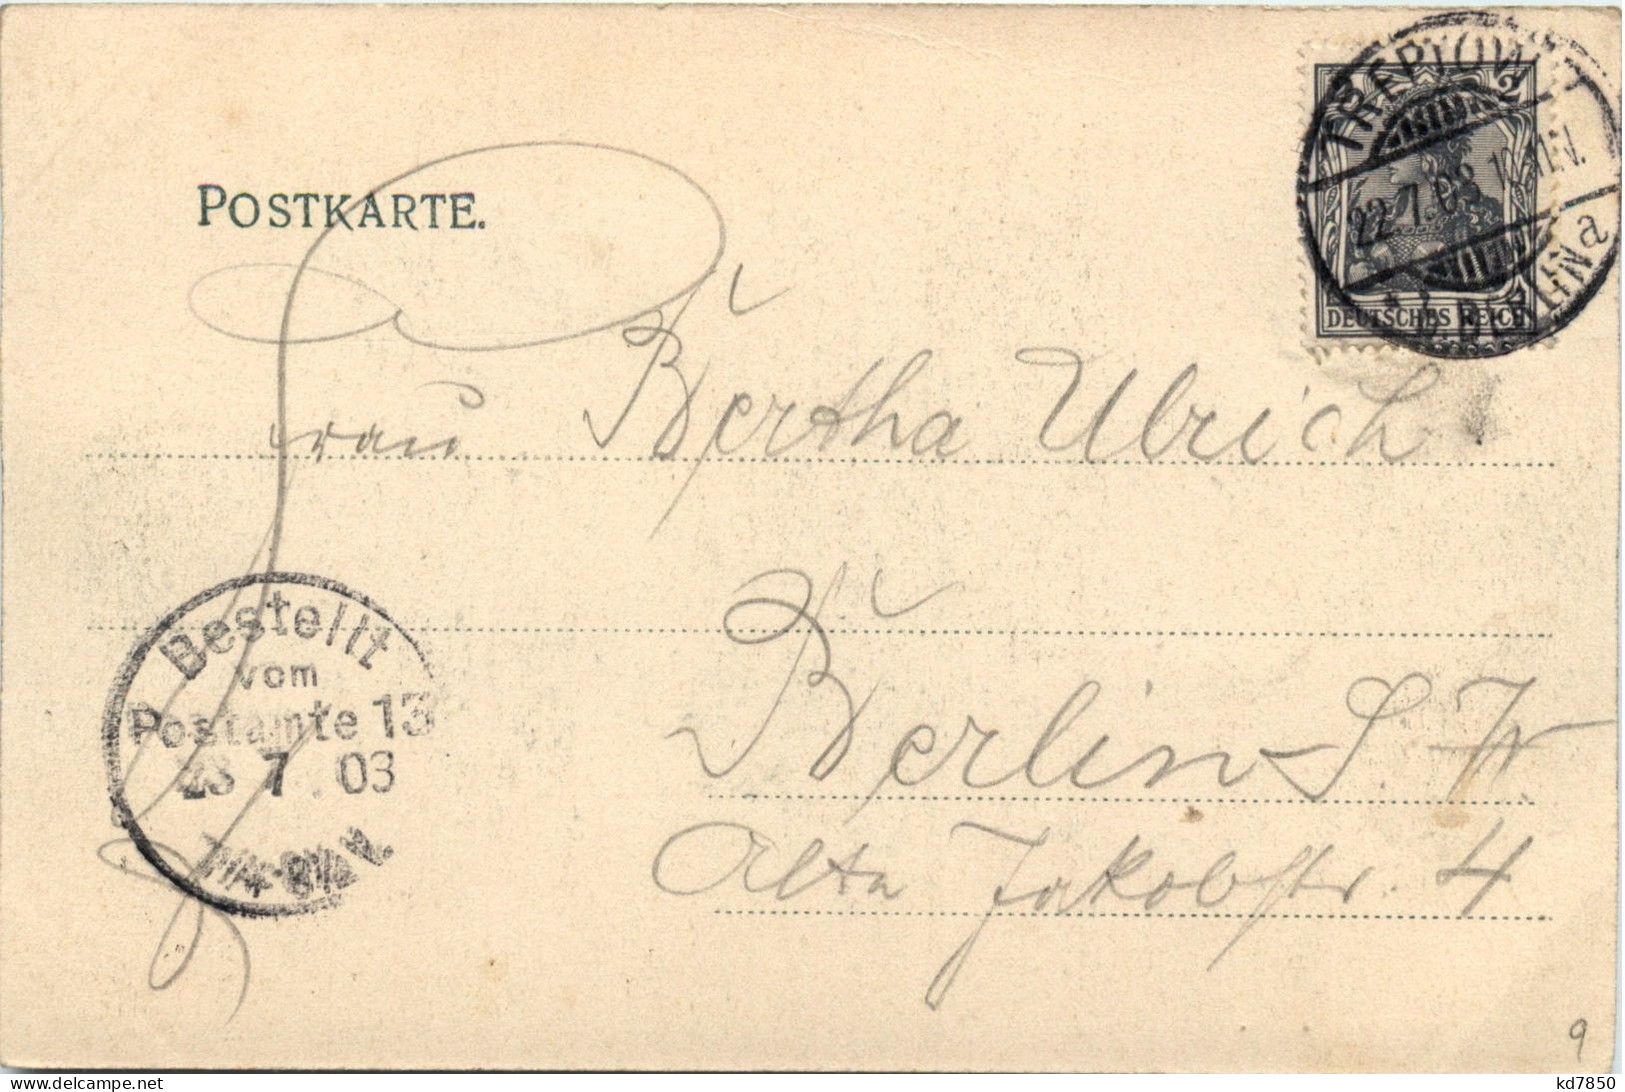 POSTKARTE.
TREPTOW
2
22.7.03. 10-11N.
BERLIN a
DEUTSCHES REICH
Frau Bertha Ulrich
Bestellt
vom
Postamte 13
23 7 . 03
V.
Berlin S W
Alta Jakobstr. 4
9
delcampe.net
kd7850